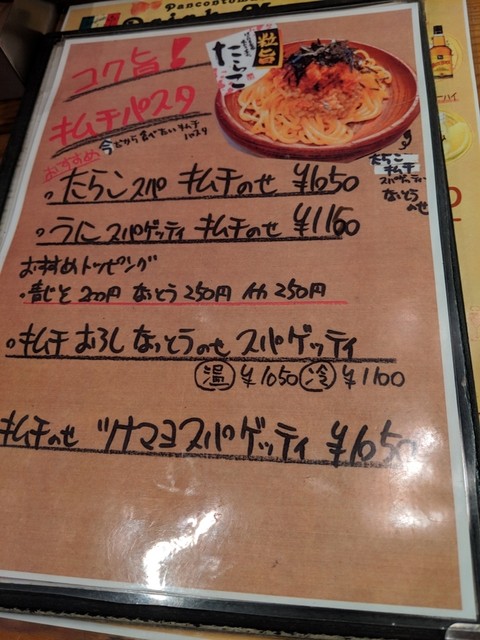 Pancontoma
コク旨!
キムチパスタ
粒旨
たらこ
今だから食べたいキムチ
パスタ
おすすめ
。たらこスパ キムチのせ ¥1050
。うにスパゲッティ キムチのせ ¥1160
おすすめトッピング
・青じそ 200円 なっとう 250円 イカ 250円
。キムチ おろし なっとうのせ スパゲッティ
温 ¥1050 冷 ¥1100
キムチのせ ツナマヨスパゲッティ ¥1050
たらこ
キムチ
スパゲッティ
なっとう
のせ